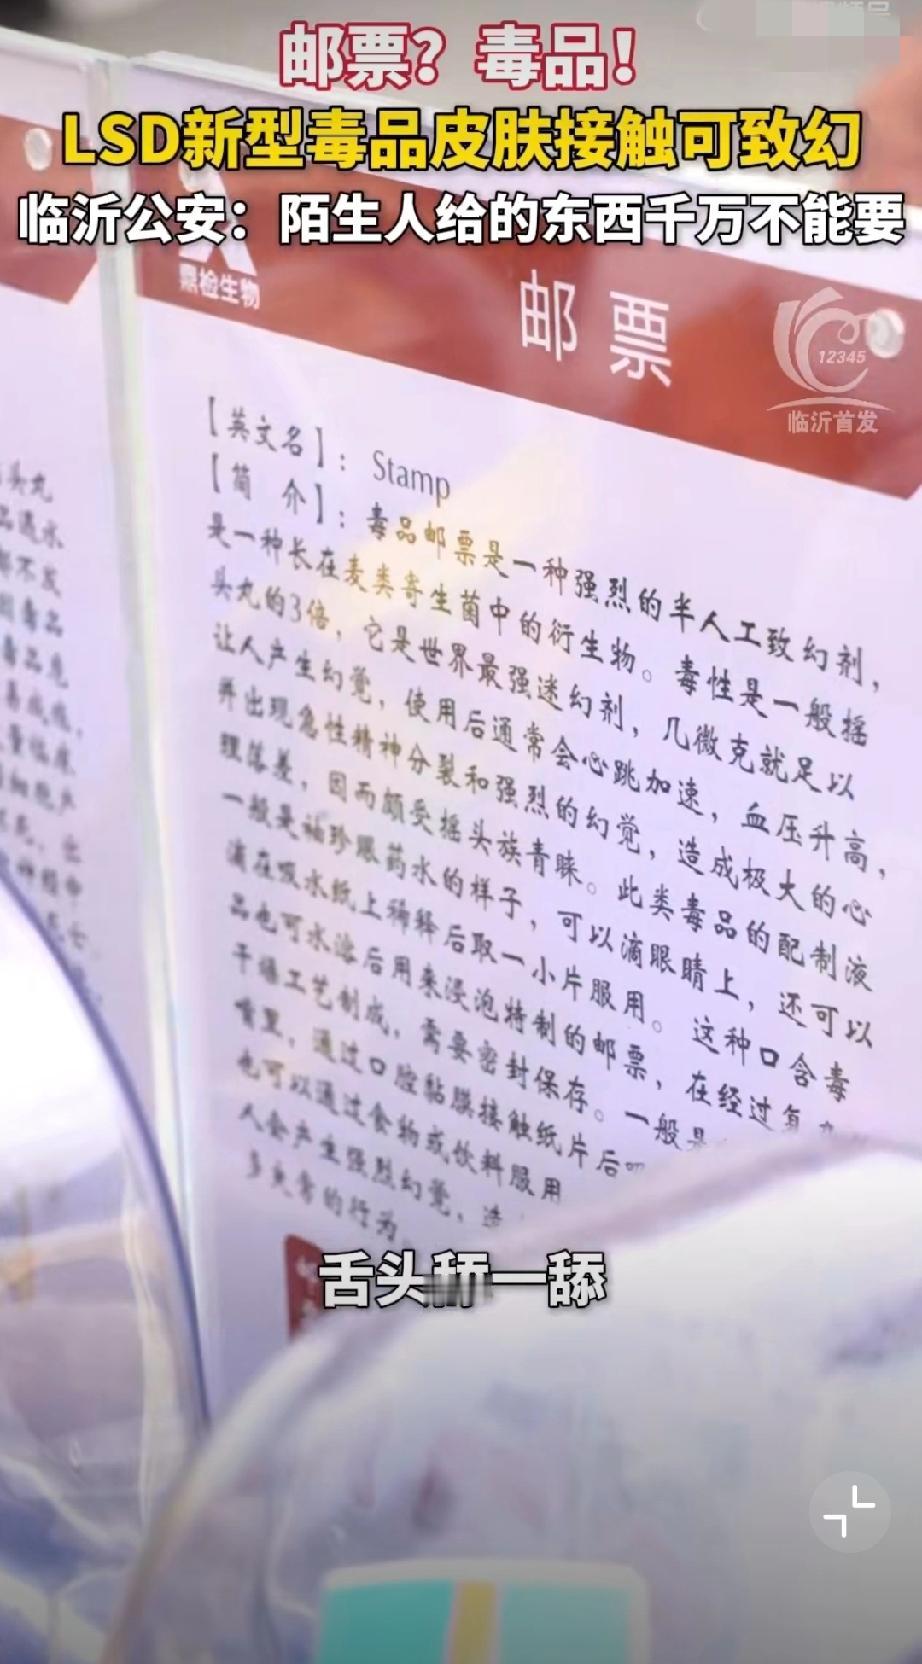 邮票？毒品！
LSD新型毒品皮肤接触可致幻
临沂公安：陌生人给的东西千万不能要
鼎检生物
邮票
12345
临沂首发
【英文名】：Stamp
【简 介】：毒品邮票是一种强烈的半人工致幻剂，
是一种长在麦类寄生菌中的衍生物。毒性是一般摇
头丸的3倍，它是世界最强迷幻剂，几微克就足以
让人产生幻觉，使用后通常会心跳加速，血压升高，
并出现急性精神分裂和强烈的幻觉，造成极大的心
理落差，因而颇受摇头族青睐。此类毒品的配制液
一般是袖珍眼药水的样子，可以滴眼睛上，还可以
滴在吸水纸上稀释后取一小片服用。这种口含毒
品也可水滤后用来浸泡特制的邮票，在经过复
干燥工艺制成，需要密封保存。一般是
嘴里，通过口腔黏膜接触纸片后
也可以通过食物或饮料服用
人会产生强烈幻觉，造
多失常的行为。
头丸
品遇水
舌头舔一舔